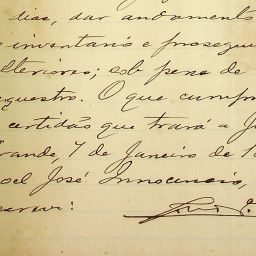 dias, dar andamento
inventario e prosegui
lteriores; sob pena de
questro. O que cumpr
certidão que trará a J
rande, 7 de Janeiro de 1
oel José Innocencio,